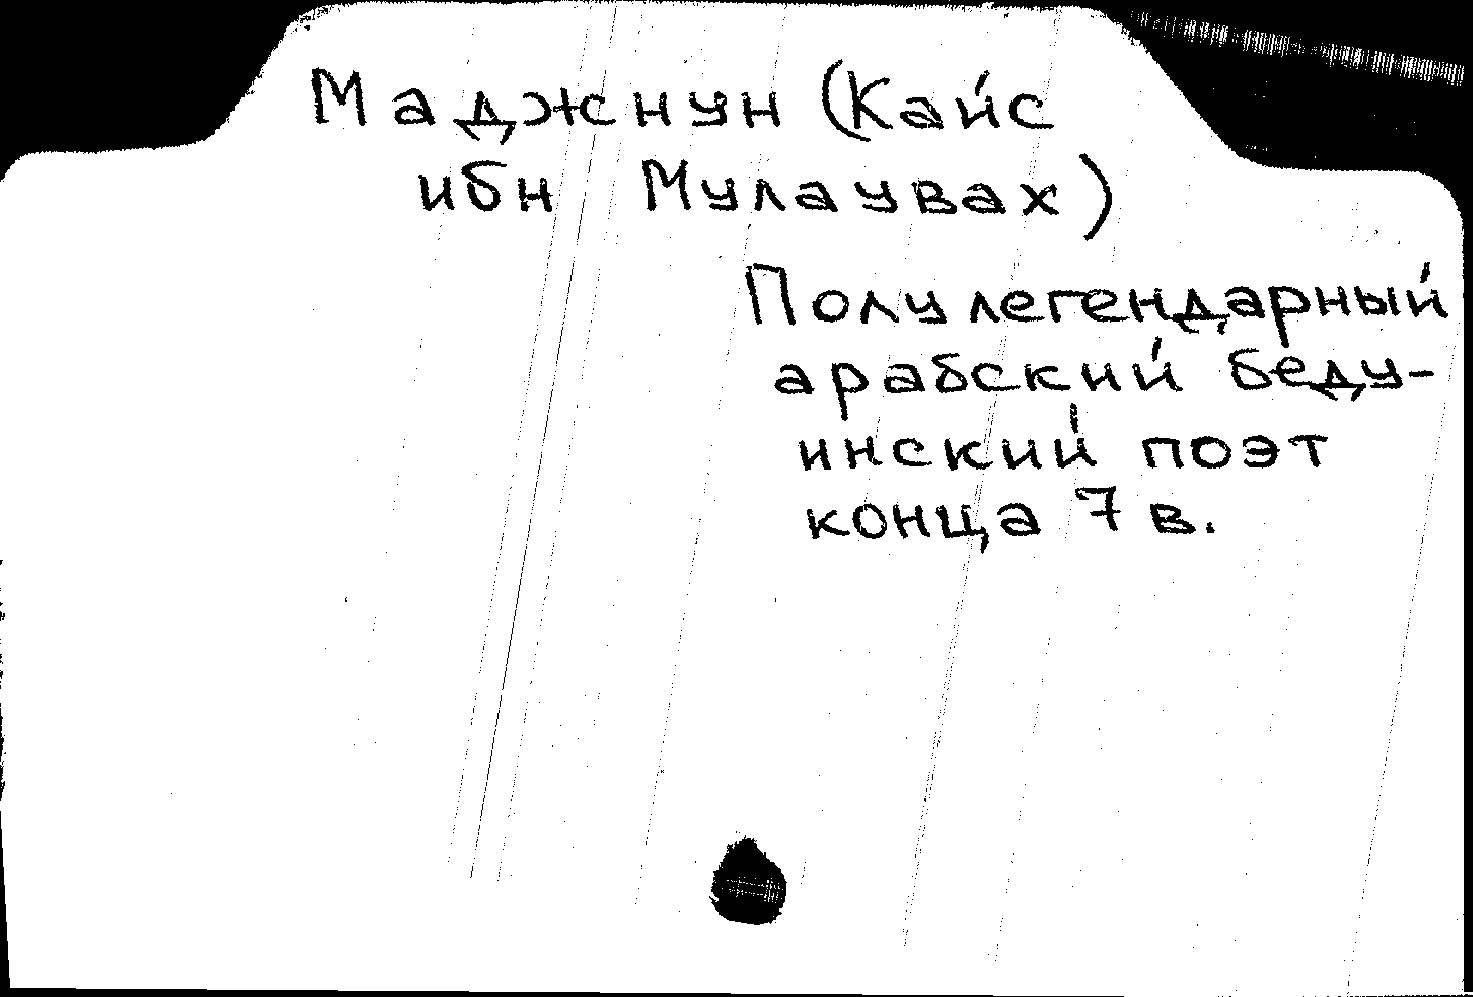 Маджнун (Кайс
ибн Мулаувах)
Полулегендарный
арабский беду-
инский поэт
конца 7 в.